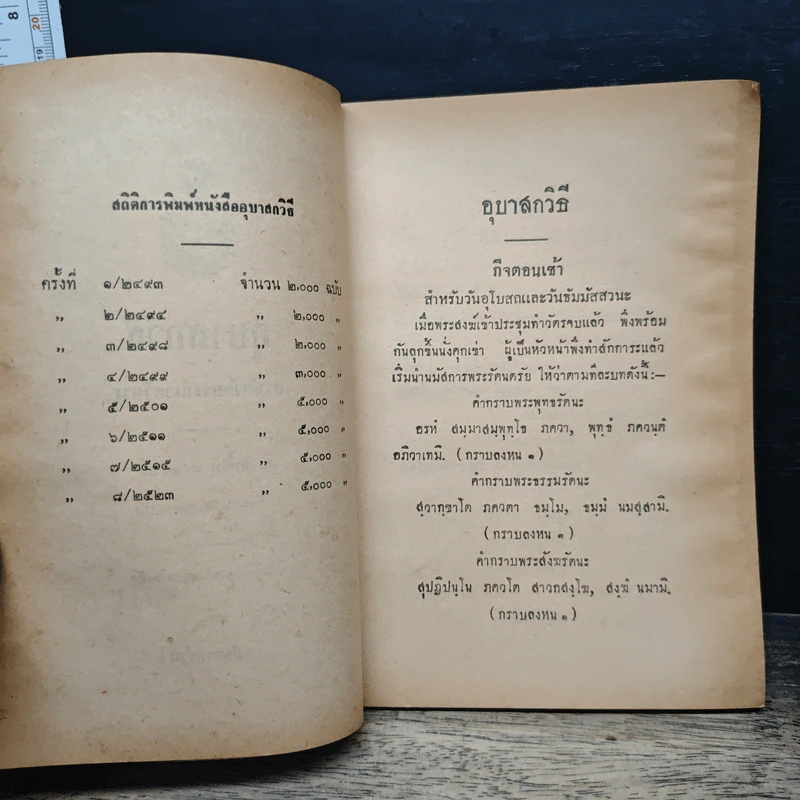 8
20
19
สถิติการพิมพ์หนังสืออุบาสกวิธี
ครั้งที่ ๑/๒๔๙๓ จำนวน ๒,๐๐๐ ฉบับ
,, ๒/๒๔๙๔ ,, ๒,๐๐๐ ,,
,, ๓/๒๔๙๘ ,, ๒,๐๐๐ ,,
,, ๔/๒๔๙๙ ,, ๓,๐๐๐ ,,
,, ๕/๒๕๐๑ ,, ๕,๐๐๐ ,,
,, ๖/๒๕๑๑ ,, ๕,๐๐๐ ,,
,, ๗/๒๕๑๕ ,, ๕,๐๐๐ ,,
,, ๘/๒๕๒๓ ,, ๕,๐๐๐ ,,
อุบาสกวิธี
กิจตอนเช้า
สำหรับวันอุโบสถและวันธัมมัสสวนะ
เมื่อพระสงฆ์เข้าประชุมทำวัตรจบแล้ว พึงพร้อม
กันลุกขึ้นนั่งคุกเข่า ผู้เป็นหัวหน้าพึงทำสักการะแล้ว
เริ่มนำนมัสการพระรัตนตรัย ให้ว่าตามทีละบทดังนี้:—
คำกราบพระพุทธรัตนะ
อรหํ สมฺมาสมฺพุทฺโธ ภควา, พุทฺธํ ภควนฺตํ
อภิวาเทมิ. (กราบลงหน ๑)
คำกราบพระธรรมรัตนะ
สฺวากฺขาโต ภควตา ธมฺโม, ธมฺมํ นมสฺสามิ.
(กราบลงหน ๑)
คำกราบพระสังฆรัตนะ
สุปฏิปนฺโน ภควโต สาวกสงฺโฆ, สงฺฆํ นมามิ.
(กราบลงหน ๑)